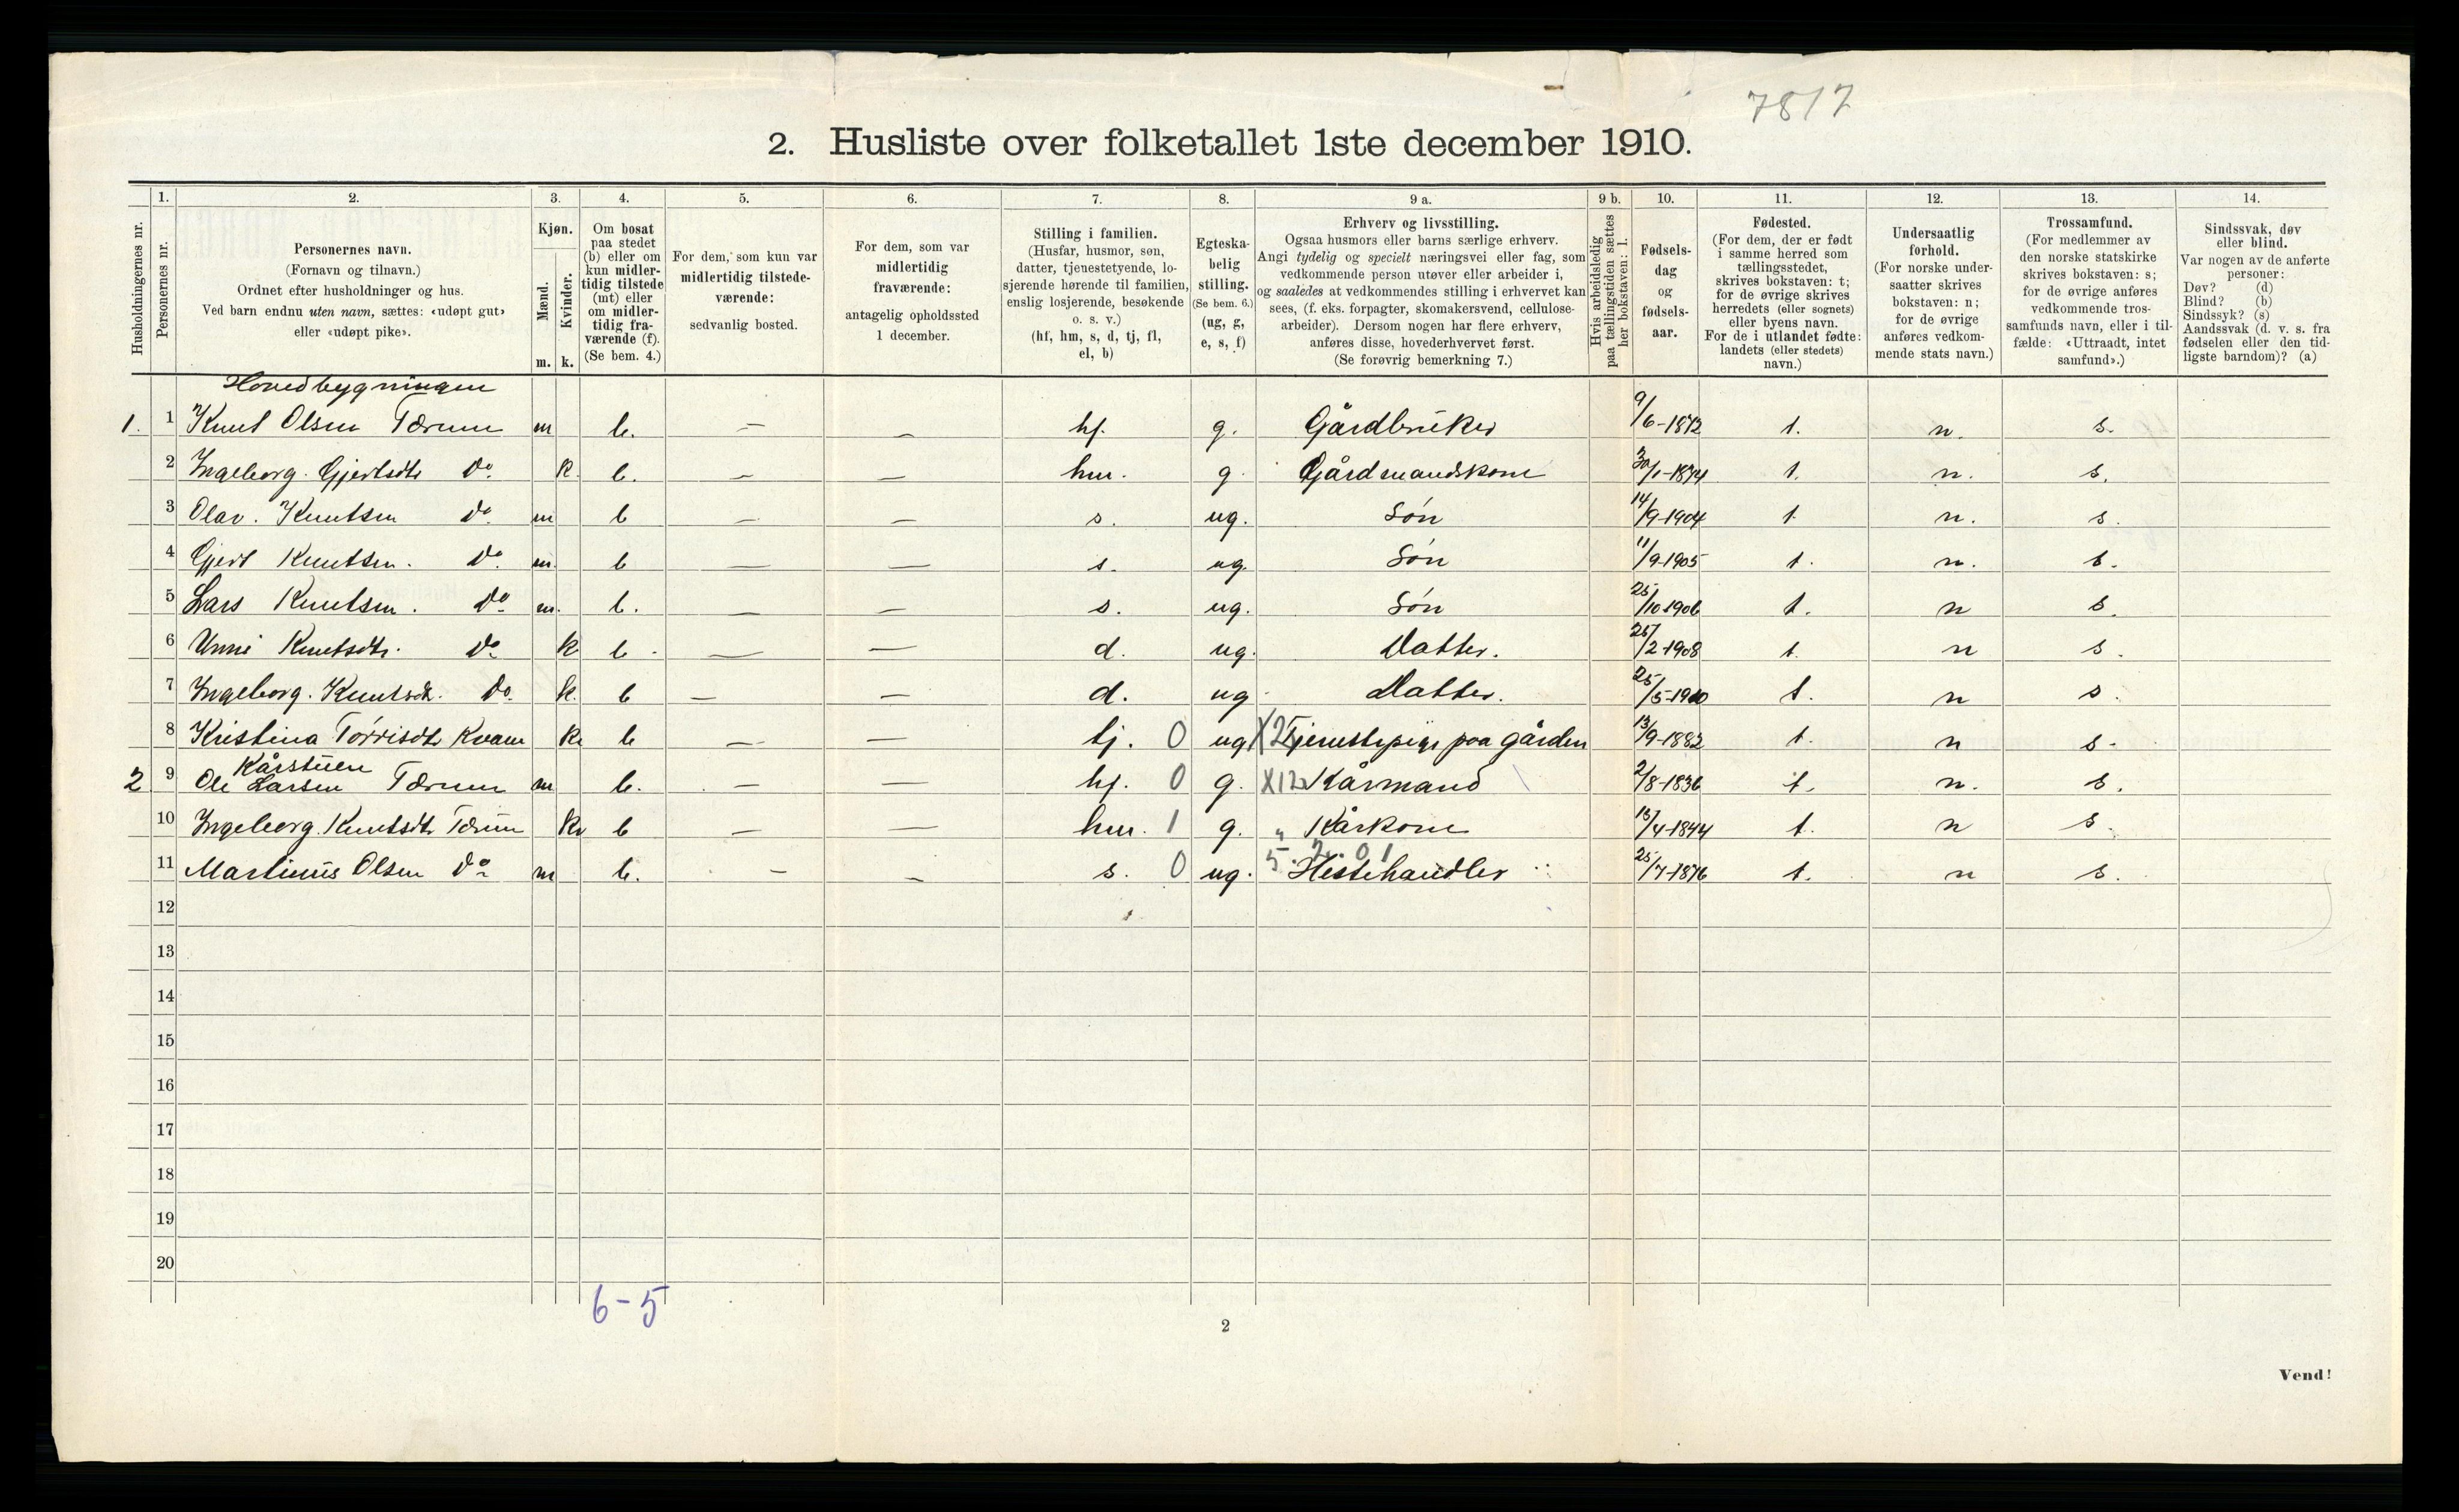 7817
2. Husliste over folketallet 1ste december 1910.
1. 2. 3. 4. 5. 6. 7. 8. 9 a. 9 b. 10. 11. 12. 13. 14.
Husholdningernes nr.
Personernes nr.
Personernes navn.
(Fornavn og tilnavn.)
Ordnet efter husholdninger og hus.
Ved barn endnu uten navn, sættes: «udøpt gut»
eller «udøpt pike».
Kjøn.
Mænd.
Kvinder.
m. k.
Om bosat
paa stedet
(b) eller om
kun midler-
tidig tilstede
(mt) eller
om midler-
tidig fra-
værende (f).
(Se bem. 4.)
For dem, som kun var
midlertidig tilstede-
værende:
sedvanlig bosted.
For dem, som var
midlertidig
fraværende:
antagelig opholdssted
1 december.
Stilling i familien.
(Husfar, husmor, søn,
datter, tjenestetyende, lo-
sjerende hørende til familien,
enslig losjerende, besøkende
o. s. v.)
(hf, hm, s, d, tj, fl,
el, b)
Egteska-
belig
stilling.
(Se bem. 6.)
(ug, g,
e, s, f)
Erhverv og livsstilling.
Ogsaa husmors eller barns særlige erhverv.
Angi tydelig og specielt næringsvei eller fag, som
vedkommende person utøver eller arbeider i,
og saaledes at vedkommendes stilling i erhvervet kan
sees, (f. eks. forpagter, skomakersvend, cellulose-
arbeider). Dersom nogen har flere erhverv,
anføres disse, hovederhvervet først.
(Se forøvrig bemerkning 7.)
Hvis arbeidsledig
paa tællingstiden sættes
her bokstaven: l.
Fødsels-
dag
og
fødsels-
aar.
Fødested.
(For dem, der er født
i samme herred som
tællingsstedet,
skrives bokstaven: t;
for de øvrige skrives
herredets (eller sognets)
eller byens navn.
For de i utlandet fødte:
landets (eller stedets)
navn.)
Undersaatlig
forhold.
(For norske under-
saatter skrives
bokstaven: n;
for de øvrige
anføres vedkom-
mende stats navn.)
Trossamfund.
(For medlemmer av
den norske statskirke
skrives bokstaven: s;
for de øvrige anføres
vedkommende tros-
samfunds navn, eller i til-
fælde: «Uttraadt, intet
samfund».)
Sindssvak, døv
eller blind.
Var nogen av de anførte
personer:
Døv? (d)
Blind? (b)
Sindssyk? (s)
Aandssvak (d. v. s. fra
fødselen eller den tid-
ligste barndom)? (a)
Hovedbygningen
1. 1 Knut Olsen Tærum m b. — — hf. g. Gårdbruker 9/6-1872 t. n. s.
2 Ingeborg Gjertsdtr do. k. b. — — hm. g. Gårdmandskone 30/1-1874 t. n. s.
3 Olav. Knutsen do. m b — — s. ug. Søn 14/9-1904 t. n. s.
4 Gjert Knutsen. do. m. b — — s. ug. Søn 11/9-1905 t. n. s.
5 Lars Knutsen. do. m. b. — — s. ug. Søn 25/10-1906 t. n s.
6 Unni Knutsdtr. do. k b — — d. ug. Datter. 25/2-1908 t. n s.
7 Ingeborg. Knutsdtr. do. k. b — — d. ug Datter. 25/5-1910 t. n s.
8 Kristina Torrisdtr Kvam k b — — tj. 0 ug X2 Tjenestepige paa gården 13/9-1882 t. n s.
Kårstuen
2 9 Ole Larsen Tærum m b. — — hf. 0 g. X12 Kårmand 2/8-1836 t. n. s.
10 Ingeborg Knutsdtr Tærum k b — — hm. 1 g. „ Kårkone 13/4-1844 t. n s.
5. 2. 0 1
11 Martinus Olsen do m b. — — s. 0 ug. Hestehandler 25/7-1876 t. n s.
12
13
14
15
16
17
18
19
20
6-5
2
Vend!